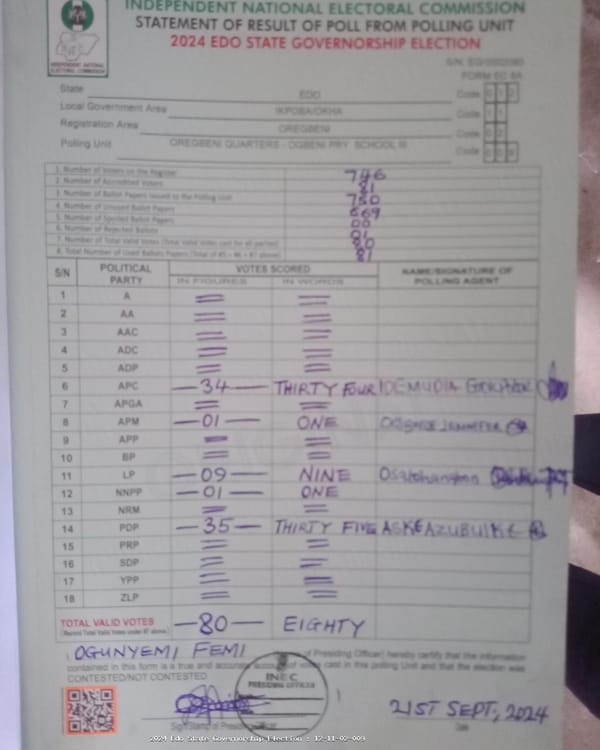 INDEPENDENT NATIONAL ELECTORAL COMMISSION
STATEMENT OF RESULT OF POLL FROM POLLING UNIT
2024 EDO STATE GOVERNORSHIP ELECTION
INDEPENDENT NATIONAL
ELECTORAL COMMISSION
FORM EC 8A
State EDO Code 1 2
Local Government Area IKPOBA/OKHA Code 1 1
Registration Area OREGBENI Code 0 2
Polling Unit OREGBENI QUARTERS - OGBENI PRY. SCHOOL III Code
1. Number of Voters on the Register 746
2. Number of Accredited Voters 81
3. Number of Ballot Papers Issued to the Polling Unit 750
4. Number of Unused Ballot Papers 669
5. Number of Spoiled Ballot Papers 00
6. Number of Rejected Ballots 01
7. Number of Total Valid Votes (Total Valid Votes cast for all parties) 80
8. Total Number of Used Ballots Papers (Total of #5 + #6 + #7 above) 81
S/N POLITICAL PARTY VOTES SCORED NAME/SIGNATURE OF POLLING AGENT
IN FIGURES IN WORDS
1 A
2 AA
3 AAC
4 ADC
5 ADP
6 APC —34— THIRTY FOUR IDEMUDIA
7 APGA
8 APM —01— ONE JENNIFER
9 APP
10 BP
11 LP —09— NINE
12 NNPP —01— ONE
13 NRM
14 PDP —35— THIRTY FIVE
15 PRP
16 SDP
17 YPP
18 ZLP
TOTAL VALID VOTES —80— EIGHTY
(Record Total Valid Votes under #7 above)
I OGUNYEMI FEMI of Presiding Officer) hereby certify that the information
contained in this form is a true and accurate account of votes cast in this polling Unit and that the election was
CONTESTED/NOT CONTESTED
INEC
PRESIDING OFFICER
21ST SEPT, 2024
Date
2024 Edo State Governorship Election : 12-11-02-009